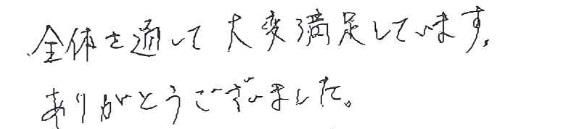 全体を通して大変満足しています。
ありがとうございました。